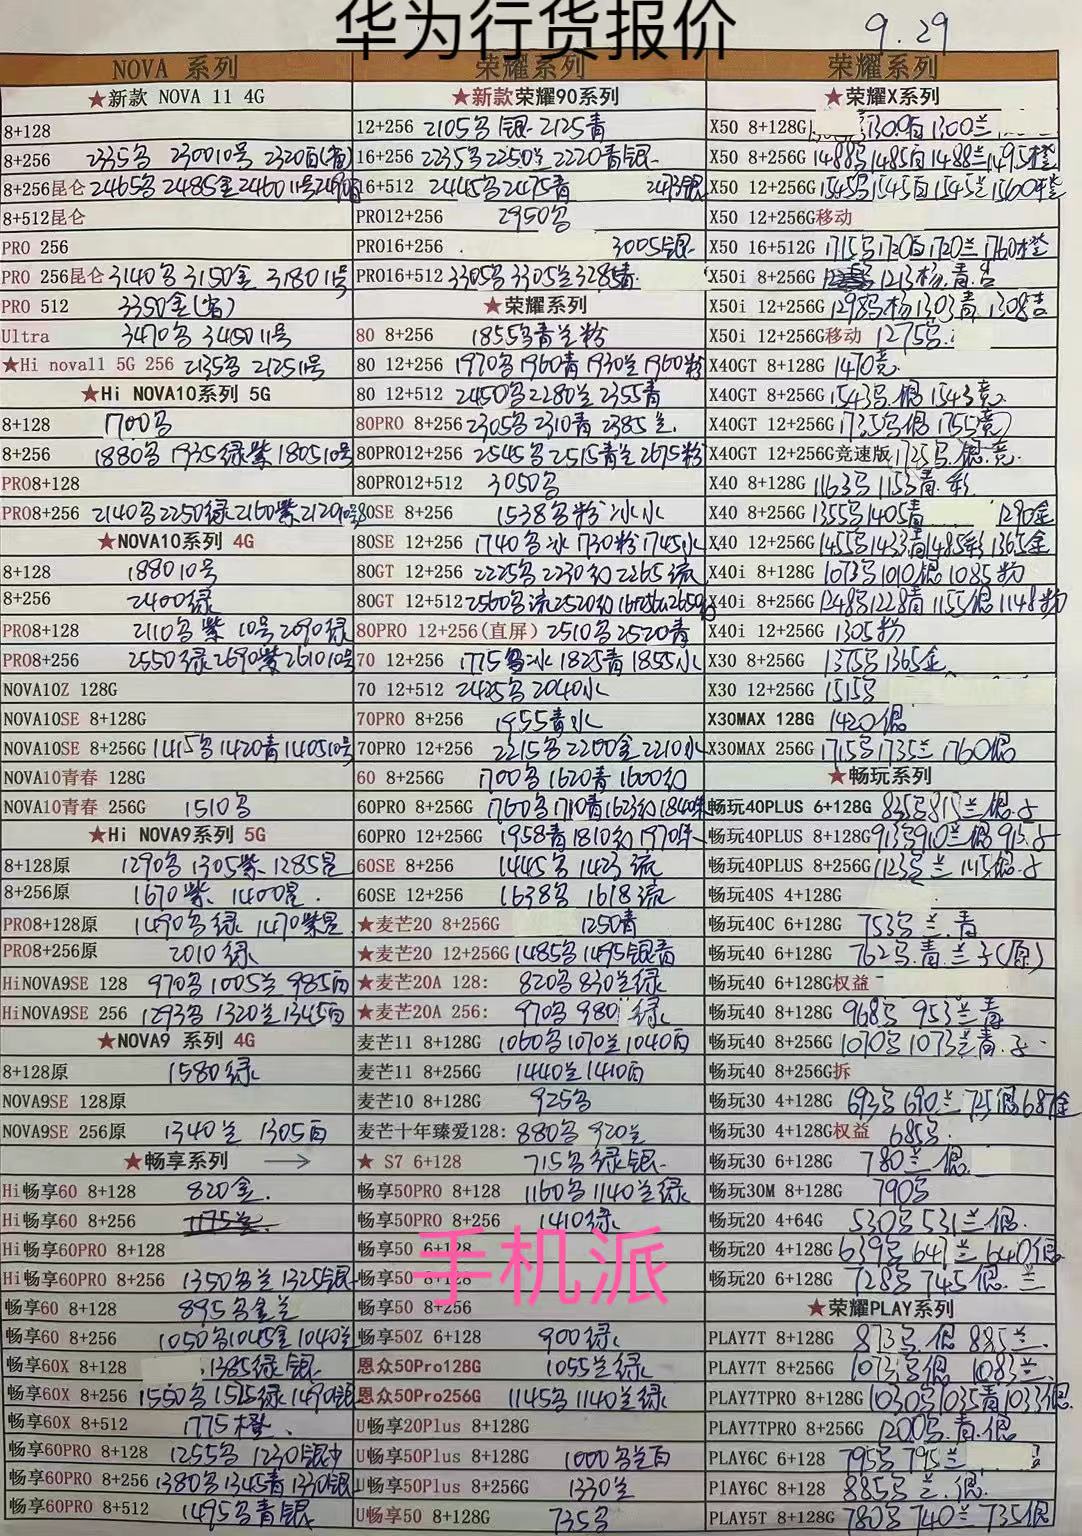 华为行货报价
9.29
NOVA 系列
★新款 NOVA 11 4G
8+128
8+256 2335名 230010号 2320白(省)
8+256昆仑 2465名 2485金 246011号
8+512昆仑
PRO 256
PRO 256昆仑 3140名 3150金 318011号
PRO 512 3350金(省)
Ultra 3470名 345011号
★Hi nova11 5G 256 2135名 212511号
★Hi NOVA10系列 5G
8+128 1700名
8+256 1880名 1935绿紫 180510号
PRO8+128
PRO8+256 2140名 2250绿 2160紫
★NOVA10系列 4G
8+128 188010号
8+256 2400绿
PRO8+128 2110名紫 10号 2090绿
PRO8+256 2550绿 2690紫 261010号
NOVA10Z 128G
NOVA10SE 8+128G
NOVA10SE 8+256G 1415名 1420青 140510号
NOVA10青春 128G
NOVA10青春 256G 1510名
★Hi NOVA9系列 5G
8+128原 1290名 1305紫 1285昆
8+256原 1670紫 1400昆
PRO8+128原 1490名绿 1470紫昆
PRO8+256原 2010绿
HiNOVA9SE 128 970名 1005兰 985白
HiNOVA9SE 256 1293名 1320兰 1345白
★NOVA9 系列 4G
8+128原 1580绿
NOVA9SE 128原
NOVA9SE 256原 1340兰 1305白
★畅享系列 →
Hi畅享60 8+128 820金
Hi畅享60 8+256
Hi畅享60PRO 8+128
Hi畅享60PRO 8+256 1350名兰 1325银
畅享60 8+128 895名金兰
畅享60 8+256 1050名 1045金 1040兰
畅享60X 8+128 1385绿银
畅享60X 8+256 1550名 1515绿 1490银
畅享60X 8+512 1775橙
畅享60PRO 8+128 1255名 1230银
畅享60PRO 8+256 1380名 1345青 1330银
畅享60PRO 8+512 1495名青银
荣耀系列
★新款荣耀90系列
12+256 2105名银 2125青
16+256 2235名 2250兰 2220青银
16+512 2445名 2475青 2473银
PRO12+256 2950名
PRO16+256 3005银
PRO16+512 3305名 3305兰 3285青
★荣耀系列
80 8+256 1855名青兰粉
80 12+256 1970名 1960青 1930兰 1960粉
80 12+512 2450名 2280兰 2355青
80PRO 8+256 2305名 2310青 2385兰
80PRO12+256 2545名 2515青兰 2675粉
80PRO12+512 3050名
80SE 8+256 1538名粉冰水
80SE 12+256 1740名冰 1730粉 1745水
80GT 12+256 2225名 2230幻 2265流
80GT 12+512 2560名流 2520幻
80PRO 12+256(直屏) 2510名 2520青
70 12+256 1775名冰 1825青 1855水
70 12+512 2425名 2040水
70PRO 8+256 1955青水
70PRO 12+256 2215名 2200金 2210水
60 8+256G 1700名 1620青 1600幻
60PRO 8+256G 1760名 1710青 1623幻
60PRO 12+256G 1958青 1810幻 1970朱
60SE 8+256 1445名 1423流
60SE 12+256 1638名 1618流
★麦芒20 8+256G 1250青
★麦芒20 12+256G 1485名 1495银青
★麦芒20A 128: 820名 830兰绿
★麦芒20A 256: 970名 980 绿
麦芒11 8+128G 1060名 1070兰 1040白
麦芒11 8+256G 1440兰 1410白
麦芒10 8+128G 925名
麦芒十年臻爱128: 880名 920兰
★ S7 6+128 715名绿银
畅享50PRO 8+128 1160名 1140兰绿
畅享50PRO 8+256 1410绿
畅享50 6+128
畅享50 8+128
手机派
畅享50 8+256
畅享50Z 6+128 900绿
恩众50Pro128G 1055兰绿
恩众50Pro256G 1145名 1140兰绿
U畅享20Plus 8+128G
U畅享50Plus 8+128G 1000名兰白
U畅享50Plus 8+256G 1330兰
U畅享50 8+128G 735名
荣耀系列
★荣耀X系列
X50 8+128G 1300兰
X50 8+256G 1488名 1485白 1488兰 1495橙
X50 12+256G 1545名 1545白 1545兰 1560橙
X50 12+256G移动
X50 16+512G 1715名 1720白 1720兰 1760橙
X50i 8+256G 1213杨.青.吉
X50i 12+256G 1298名杨 1303青 1308吉
X50i 12+256G移动 1275名
X40GT 8+128G 1470竞
X40GT 8+256G 1543名.银 1543竞
X40GT 12+256G 1735名银 1755竞
X40GT 12+256G竞速版 1725名.银.竞
X40 8+128G 1163名 1153青.彩
X40 8+256G 1355名 1405青 1290金
X40 12+256G 1455名 1433青 1485彩 1365金
X40i 8+128G 1073名 1010银 1085粉
X40i 8+256G 1248名 1228青 1155银 1148粉
X40i 12+256G 1305粉
X30 8+256G 1375名 1365金
X30 12+256G 1515名
X30MAX 128G 1420银
X30MAX 256G 1715名 1735兰 1760银
★畅玩系列
畅玩40PLUS 6+128G 835名 815兰银
畅玩40PLUS 8+128G 913名 910兰银
畅玩40PLUS 8+256G 1123名兰 1145银
畅玩40S 4+128G
畅玩40C 6+128G 753名兰.青
畅玩40 6+128G 762名.青.兰子(原)
畅玩40 6+128G权益
畅玩40 8+128G 968名 953兰青
畅玩40 8+256G 1070名 1073兰青
畅玩40 8+256G拆
畅玩30 4+128G 693名 690兰 725银 687金
畅玩30 4+128G权益 685名
畅玩30 6+128G 780兰银
畅玩30M 8+128G 790名
畅玩20 4+64G 530名 531兰银
畅玩20 4+128G 639名 641兰 640银
畅玩20 6+128G 728名 745银 兰
★荣耀PLAY系列
PLAY7T 8+128G 873名.银 885兰
PLAY7T 8+256G 1073名银 1083兰
PLAY7TPRO 8+128G 1030名 1035青 1033银
PLAY7TPRO 8+256G 1200名.青.银
PLAY6C 6+128 795名 795兰
PlAY6C 8+128 885名兰.银
PLAY5T 8+128G 780名 740兰 735银